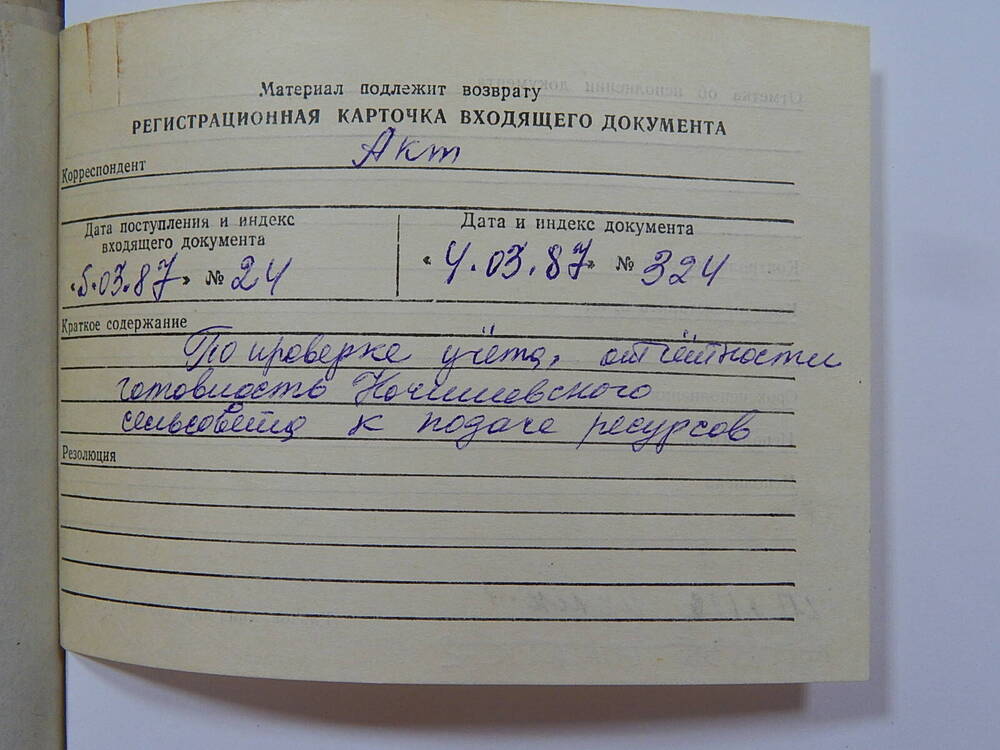 Материал подлежит возврату
РЕГИСТРАЦИОННАЯ КАРТОЧКА ВХОДЯЩЕГО ДОКУМЕНТА
Корреспондент Акт
Дата поступления и индекс
входящего документа
«5.03.87» № 24
Дата и индекс документа
«4.03.87» № 324
Краткое содержание
По проверке учёта, отчётности
готовность
сельсовета к подаче ресурсов
Резолюция